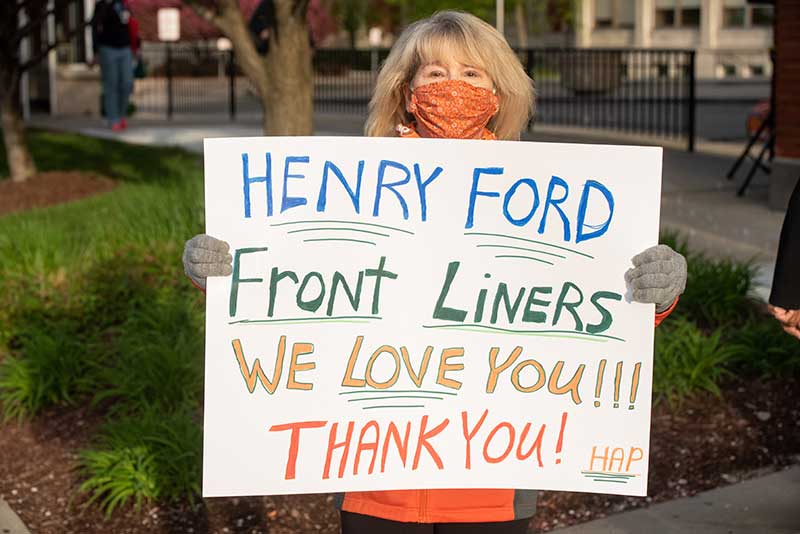 HENRY FORD
FRONT LINERS
WE LOVE YOU!!!
THANK YOU!
HAP